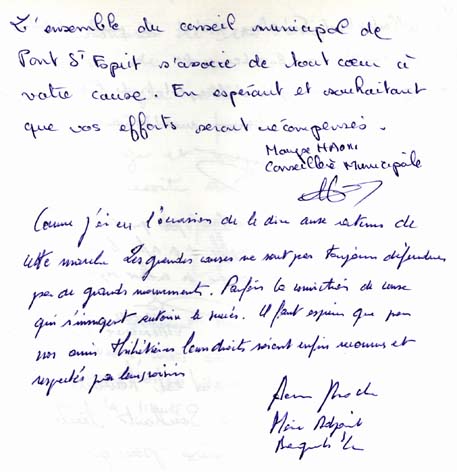 L'ensemble du conseil municipal de
Pont St Esprit s'associe de tout cœur à
votre cause. En espérant et souhaitant
que vos efforts seront récompensés.
Conseillère Municipale
Comme j'ai eu l'occasion de le dire aux
cette marche Les grandes causes ne sont pas toujours défendues
par de grands mouvements. Parfois la conviction de ceux
qui s'insurgent le succès. Il faut espérer que pour
nos amis Tibétains leurs droits seront enfin reconnus et
respectés par leurs voisins
Maire Adjoint